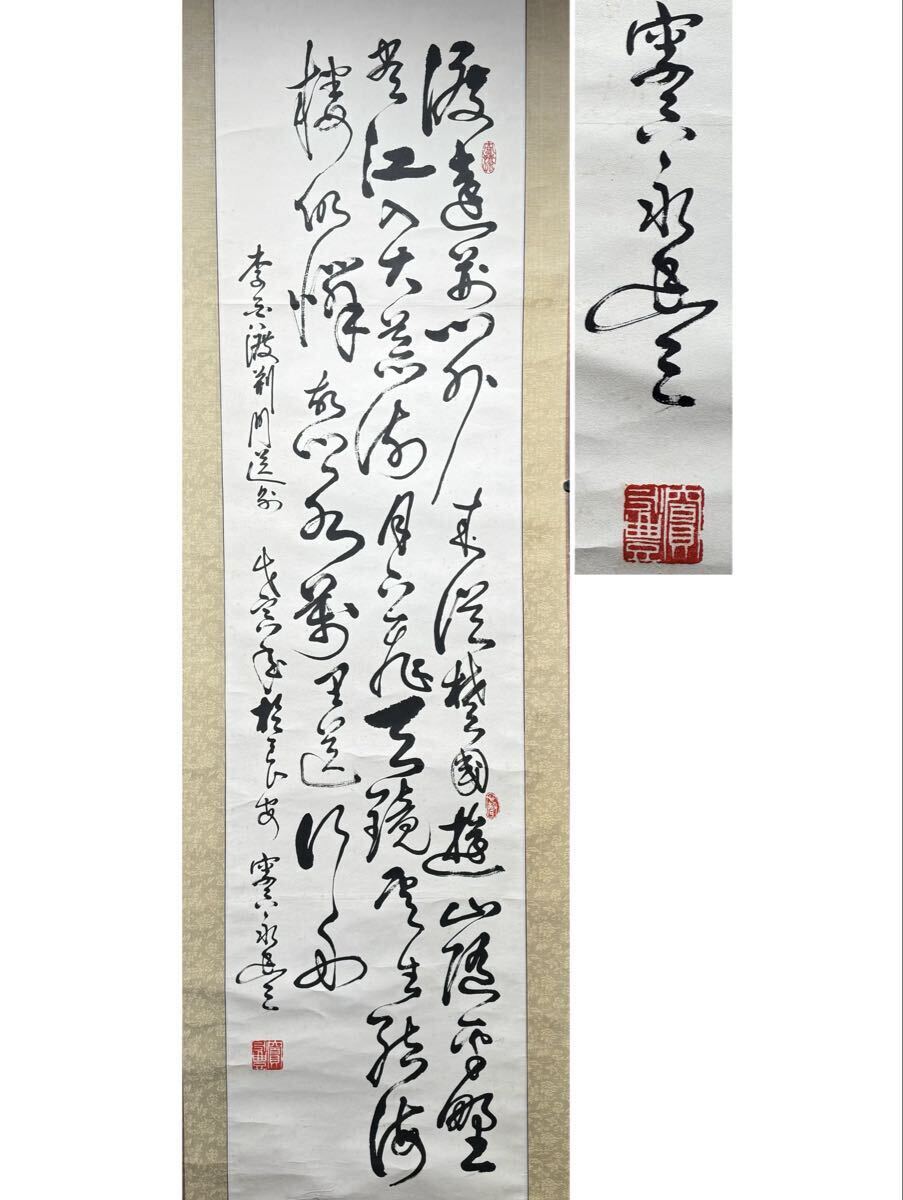 渡遠荊門外來從楚國遊山隨平野
盡江入大荒流月下飛天鏡雲生結海
樓仍憐故鄉水萬里送行舟
李白渡荊門送別 戊寅年於長安